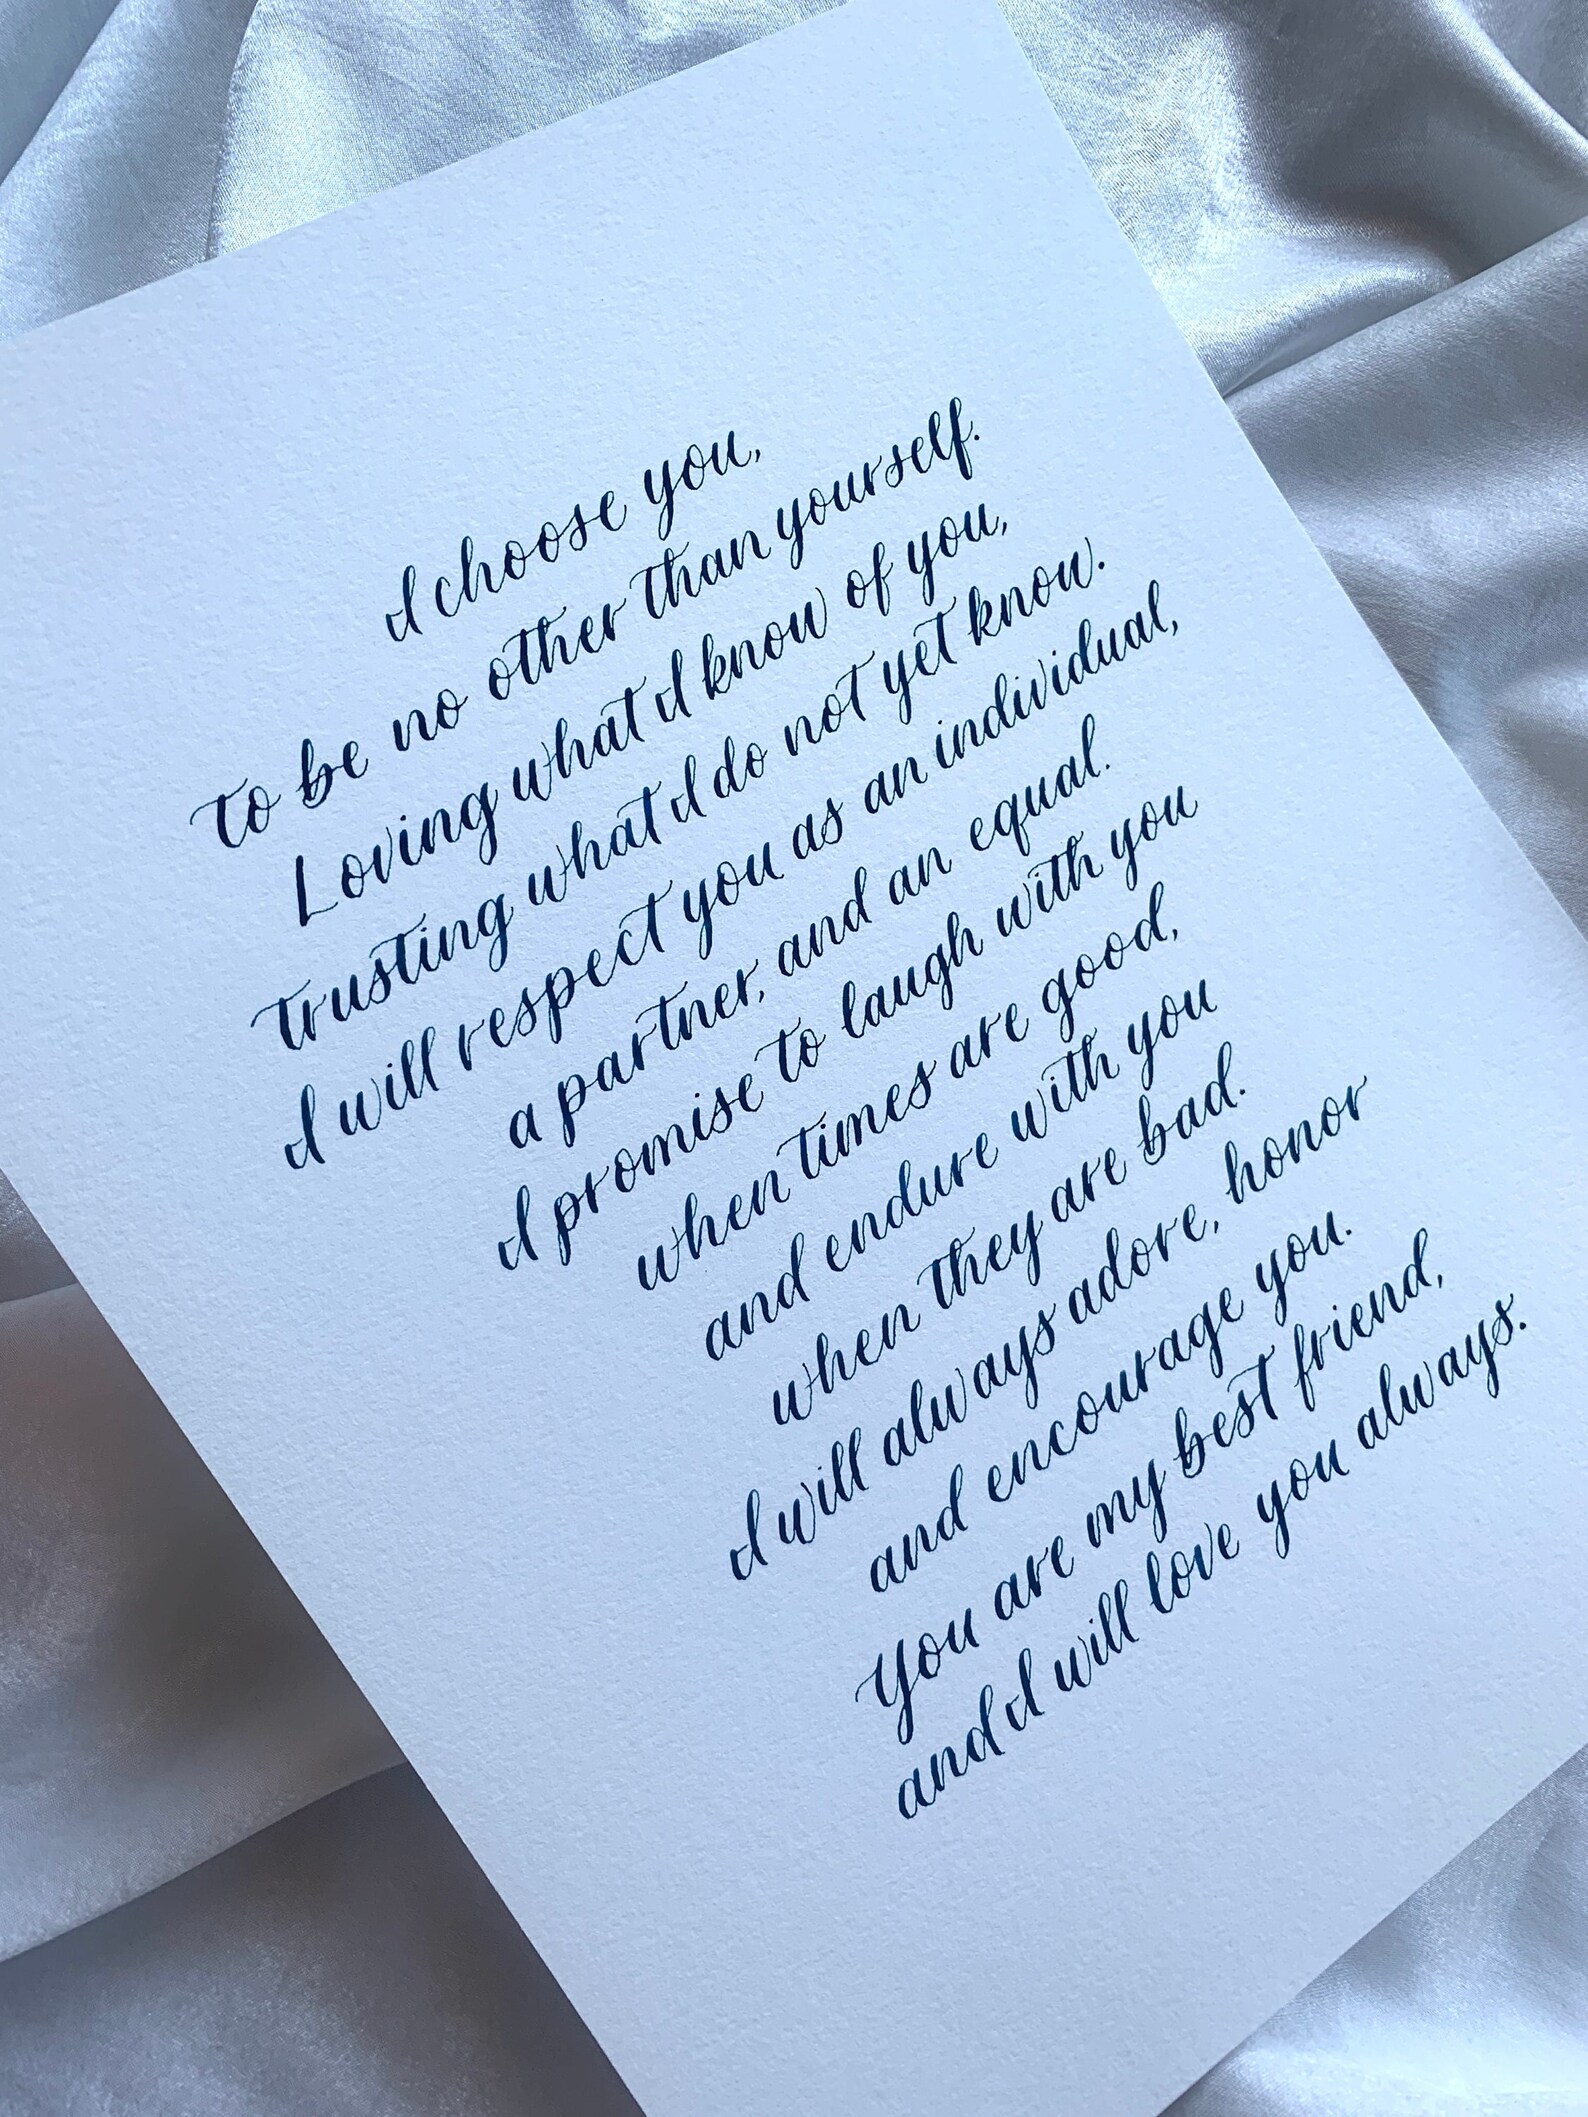 I choose you,
to be no other than yourself.
Loving what I know of you,
trusting what I do not yet know.
I will respect you as an individual,
a partner, and an equal.
I promise to laugh with you
when times are good,
and endure with you
when they are bad.
I will always adore, honor
and encourage you.
You are my best friend,
and I will love you always.